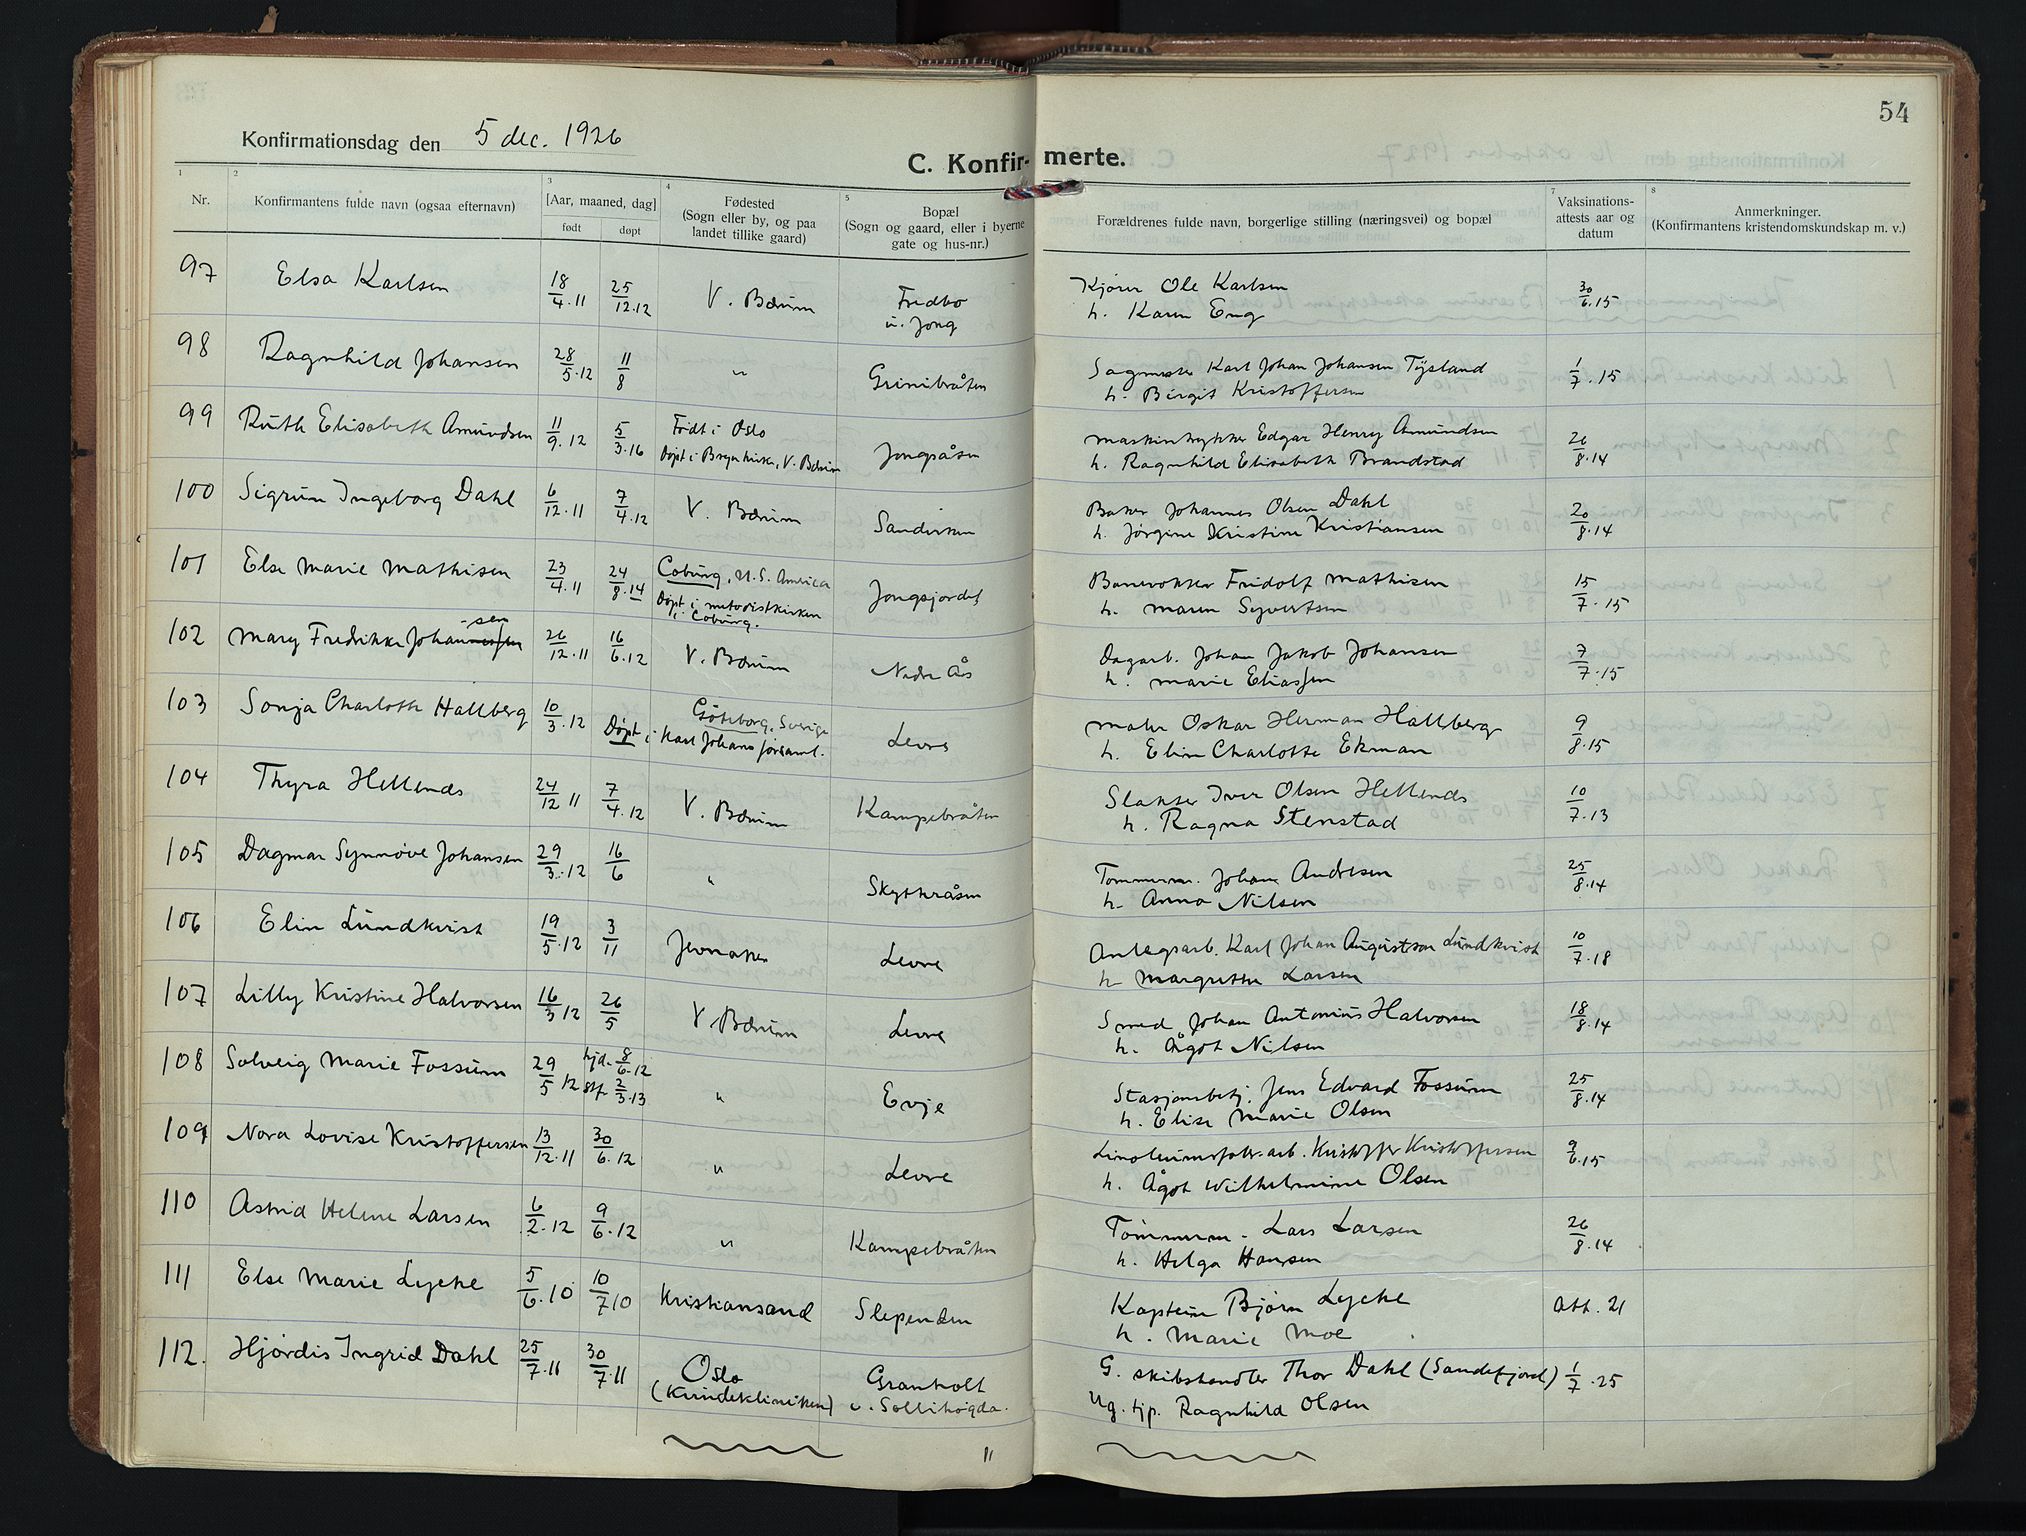 54
Konfirmationsdag den 5 dec. 1926
C. Konfirmerte.
1 2 3 4 5 7 8
Nr.
Konfirmantens fulde navn (ogsaa efternavn)
[Aar, maaned, dag]
født døpt
Fødested
(Sogn eller by, og paa
landet tillike gaard)
Bopæl
(Sogn og gaard, eller i byerne
gate og hus-nr.)
Forældrenes fulde navn, borgerlige stilling (næringsvei) og bopæl
Vaksinations-
attests aar og
datum
Anmerkninger.
(Konfirmantens kristendomskundskap m. v.)
97 Elsa Karlsen 18/4.11 25/12.12 V. Bærum Fredbo Kjører Ole Karlsen 30/6.15
u. Jong h. Karen Eng
98 Ragnhild Johansen 28/5.12 11/8 " Grinibråten Sagmester Karl Johan Johansen Tysland 1/7.15
h. Birgit Kristoffersen
99 Ruth Elisabeth Amundsen 11/9.12 5/3.16 Født i Oslo Jongsåsen Maskintrykker Edgar Henry Amundsen 26/8.14
Døpt i Bryn kirke, V. Bærum h. Ragnhild Elisabeth Brandstad
100 Sigrun Ingeborg Dahl 6/12.11 7/4.12 V. Bærum Sandviken Baker Johannes Olsen Dahl 20/8.14
h. Jørgine Kristine Kristiansen
101 Else Marie Mathisen 23/4.11 24/8.14 Coburg, U.S. America Jongsjordet Banevokter Fridolf Mathisen 15/7.15
Døpt i metodistkirken h. Maren Syvertsen
i Coburg.
102 Mary Fredrikke Johannessen -sen 26/12.11 16/6.12 V. Bærum Nedre Ås Dagarb. Johan Jakob Johansen 7/7.15
h. Marie Eliassen
103 Sonja Charlotte Hallberg 10/3.12 Göteborg, Sverige Levre Maler Oskar Herman Hallberg 9/8.15
Døpt i Karl Johans forsaml. h. Elin Charlotte Ekman
104 Thyra Hellends 24/12 11 7/4.12 V. Bærum Kampebråten Slakter Iver Olsen Hellends 10/7.13
h. Ragna Stenstad
105 Dagmar Synnøve Johansen 29/3.12 16/6 " Skytteråsen Tømmerm. Johan Andresen 25/8.14
h. Anna Nilsen
106 Elin Lundkvist 19/5.12 3/11 Jevnaker Levre Anlegsarb. Karl Johan Augustson Lundkvist 10/7.18
h. Margrethe Larsen
107 Lilly Kristine Halvorsen 16/3 12 26/5 V. Bærum Levre Smed Johan Antonius Halvorsen 18/8.14
h. Ågot Nilsen
108 Solveig Marie Fossum 29/5 12 hjd. 8/6.12 " Evje Stasjonsbetj. Jens Edvard Fossum 25/8.14
stf. 2/3.13 h. Elise Marie Olsen
109 Nora Lovise Kristoffersen 13/12.11 30/6.12 " Levre Linoleumsfabr.arb. Kristoffer Kristoffersen 9/6.15
h. Ågot Wilhelmine Olsen
110 Astrid Helene Larsen 6/2.12 9/6.12 " Kampebråten Tømmerm. Lars Larsen 26/8.14
h. Helga Hansen
111 Else Marie Lycke 5/6.10 10/7 10 Kristiansand Slependen Kaptein Bjørn Lycke att. 21
h. Marie Moe
112. Hjørdis Ingrid Dahl 25/7.11 30/7.11 Oslo Granholt G. skibshandler Thor Dahl (Sandefjord) 1/7.25
(Kvindeklinikken) u. Sollihøgda. Ug. tjp. Ragnhild Olsen
11